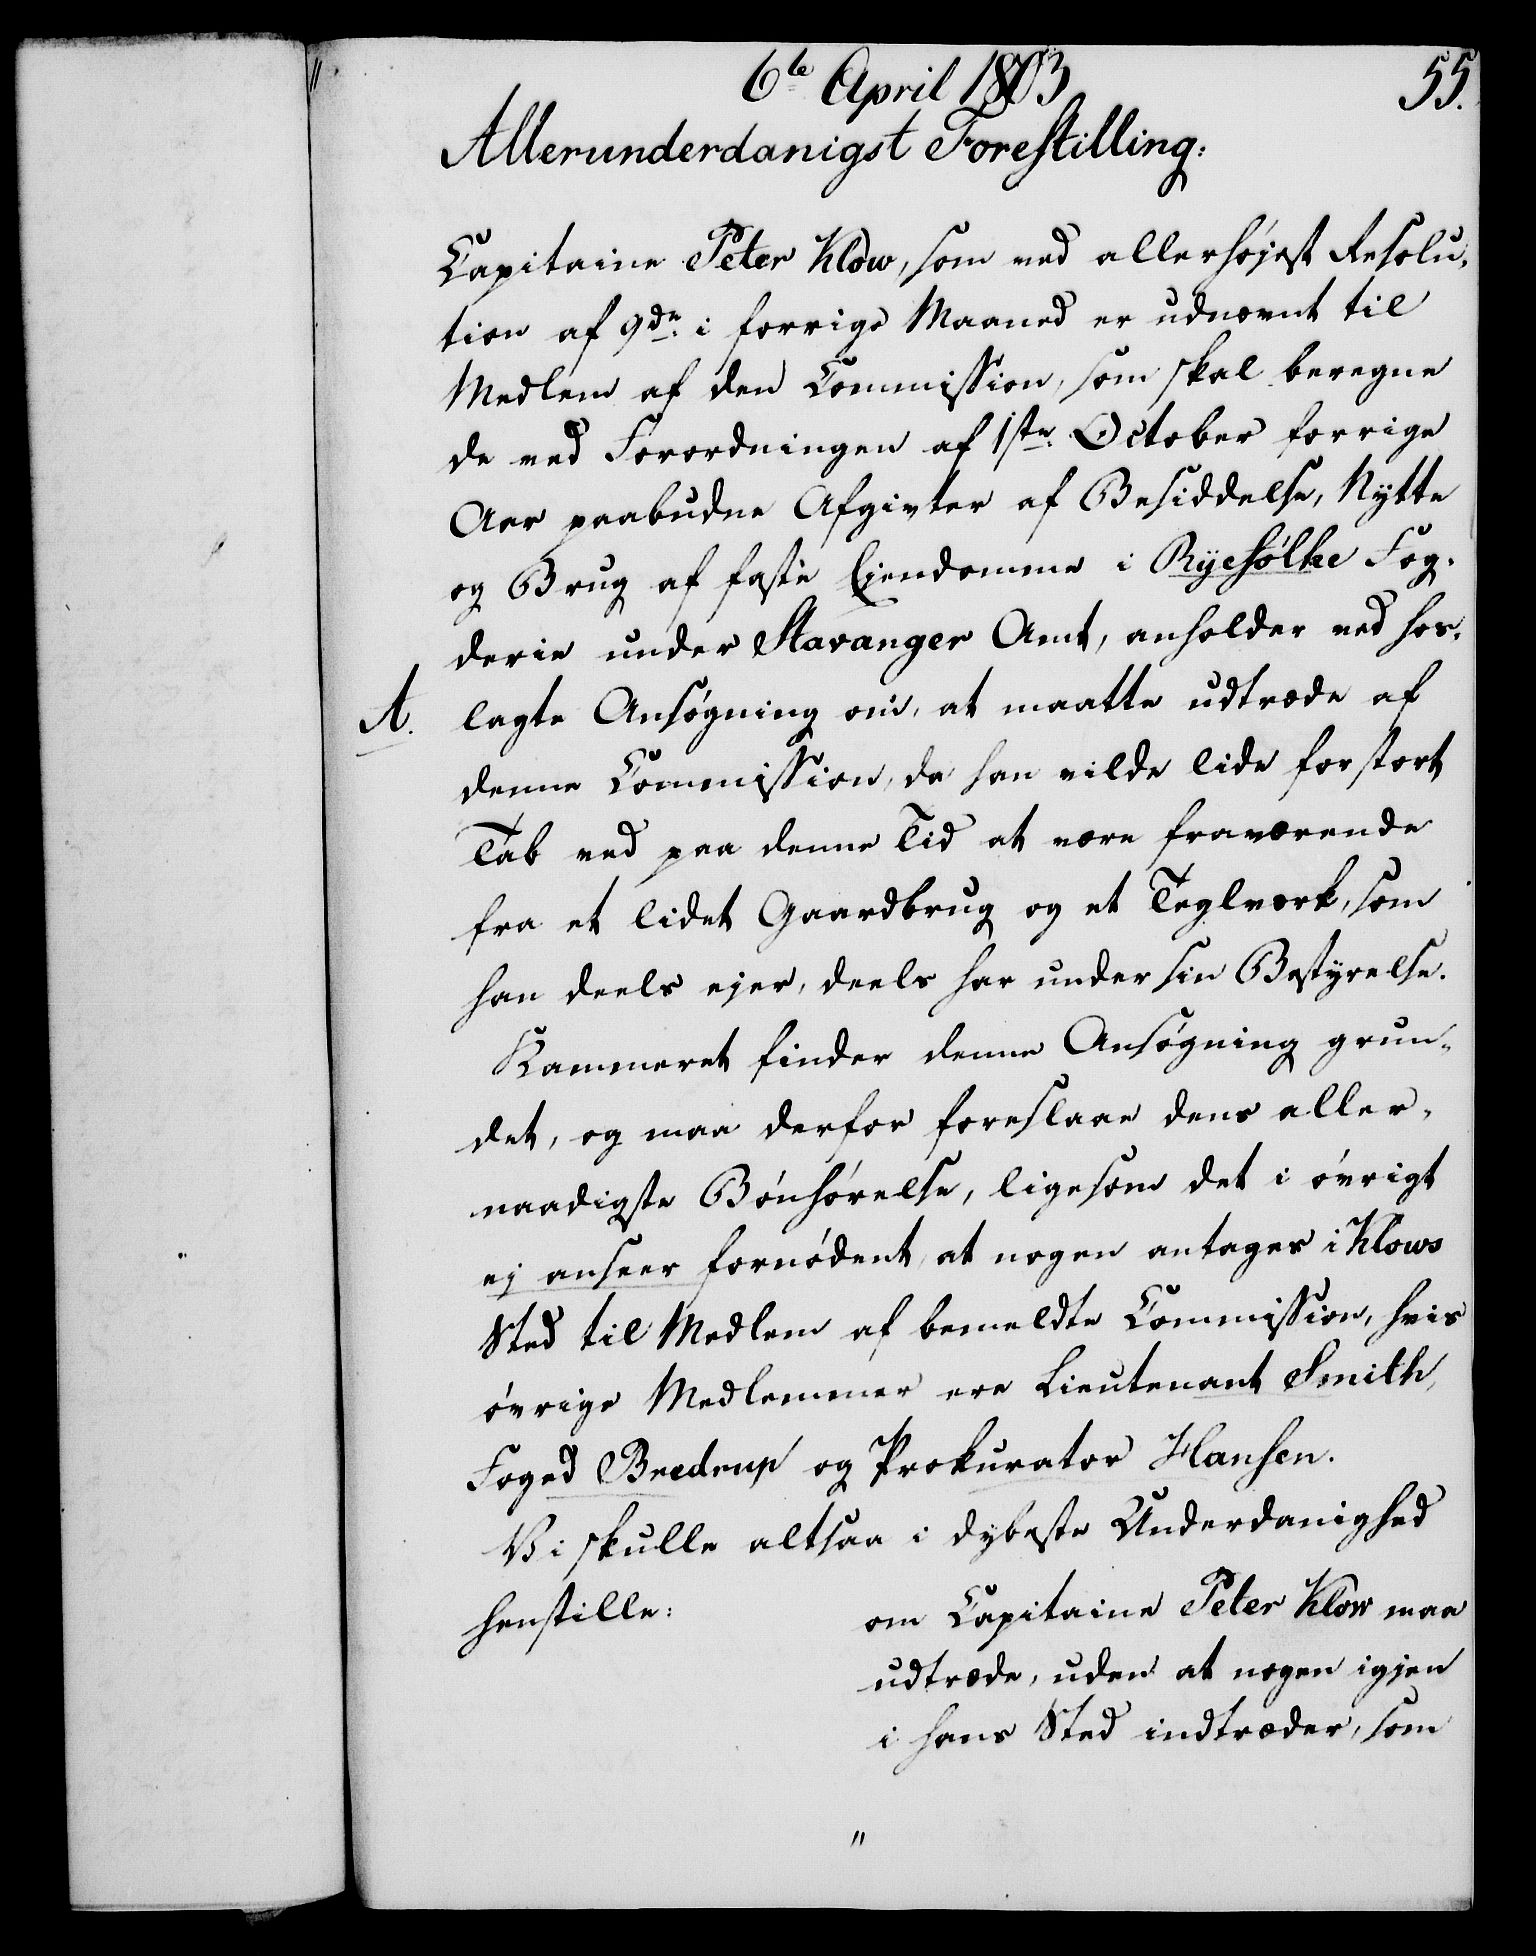 6te April 1803
55.
Allerunderdanigst Forestilling:
Capitaine Peter Klow, som ved allerhøjest Resolu-
tion af 9de i forrige Maaned er udnævnt til
Medlem af den Commission, som skal beregne
de ved Forordningen af 1ste October forrige
Aar paabudne Afgivter af Besiddelse, Nytte
og Brug af faste Ejendomme i Ryefølke Fog-
derie under Stavanger Amt, anholder ved hos-
A. lagte Ansøgning om, at maatte udtræde af
denne Commission, da han vilde lide forstort
Tab ved paa denne Tid at være fraværende
fra et lidet Gaardbrug og et Teglværk, som
han deels ejer, deels har under sin Bestyrelse.
Kammeret finder denne Ansøgning grun-
det, og maa derfor foreslaae dens aller-
naadigste Bønhørelse, ligesom det i øvrigt
ej anseer fornødent, at nogen antages i Klows
Sted til Medlem af bemeldte Commission, hvis
øvrige Medlemmer ere Lieutenant Smith,
Foged Bredrup og Prokurator Hansen.
Vi skulle altsaa i dybeste Underdanighed
henstille:
om Capitaine Peter Klow maa
udtræde, uden at nogen igjen
i hans Sted indtræder, som
"